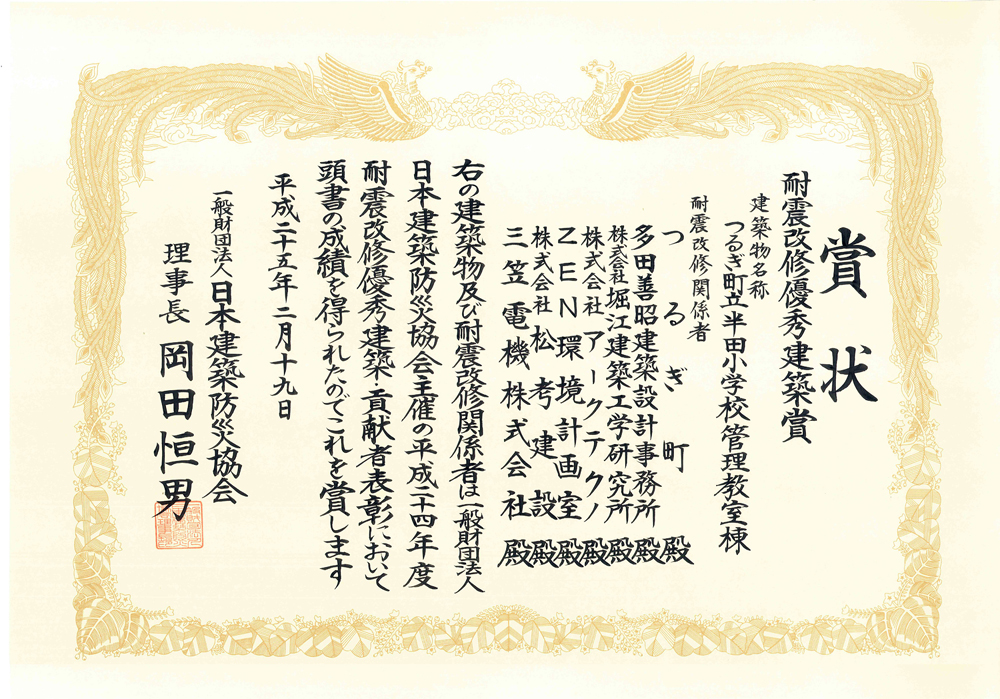 賞状
耐震改修優秀建築賞
建築物名称
つるぎ町立半田小学校管理教室棟
耐震改修関係者
つるぎ町 殿
多田善昭建築設計事務所 殿
株式会社堀江建築工学研究所 殿
株式会社アークテクノ 殿
ZEN環境計画室 殿
株式会社松考建設 殿
三笠電機株式会社 殿
右の建築物及び耐震改修関係者は一般財団法人
日本建築防災協会主催の平成二十四年度
耐震改修優秀建築・貢献者表彰において
頭書の成績を得られたのでこれを賞します
平成二十五年二月十九日
一般財団法人日本建築防災協会
理事長 岡田恒男